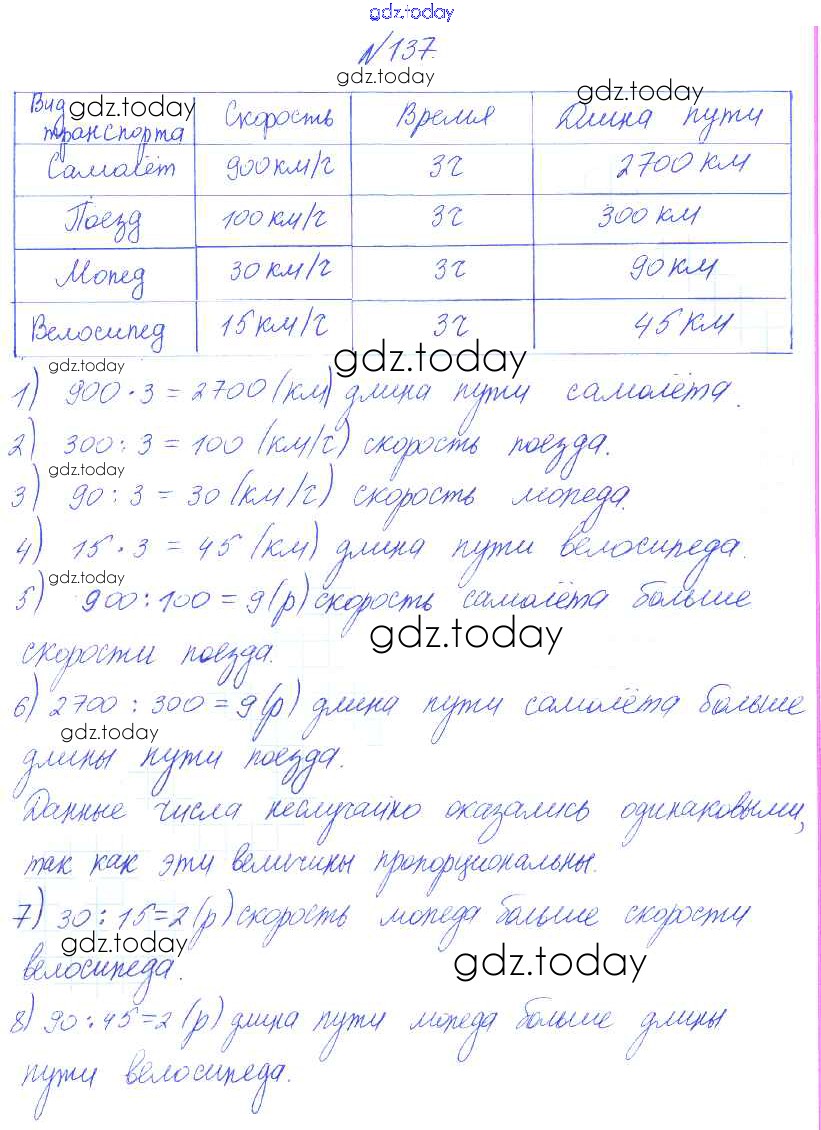 gdz.today
№137.
gdz.today
Вид транспорта Скорость Время Длина пути
gdz.today gdz.today
Самолёт 900 км/ч 3ч 2700 км
Поезд 100 км/ч 3ч 300 км
Мопед 30 км/ч 3ч 90 км
Велосипед 15 км/ч 3ч 45 км
gdz.today gdz.today
1) 900 · 3 = 2700 (км) длина пути самолёта.
2) 300 : 3 = 100 (км/ч) скорость поезда.
gdz.today
3) 90 : 3 = 30 (км/ч) скорость мопеда.
4) 15 · 3 = 45 (км) длина пути велосипеда.
gdz.today
5) 900 : 100 = 9 (р) скорость самолёта больше
gdz.today
скорости поезда.
6) 2700 : 300 = 9 (р) длина пути самолёта больше
gdz.today
длины пути поезда.
Данные числа неслучайно оказались одинаковыми,
так как эти величины пропорциональны.
7) 30 : 15 = 2 (р) скорость мопеда больше скорости
gdz.today gdz.today
велосипеда.
8) 90 : 45 = 2 (р) длина пути мопеда больше длины
пути велосипеда.